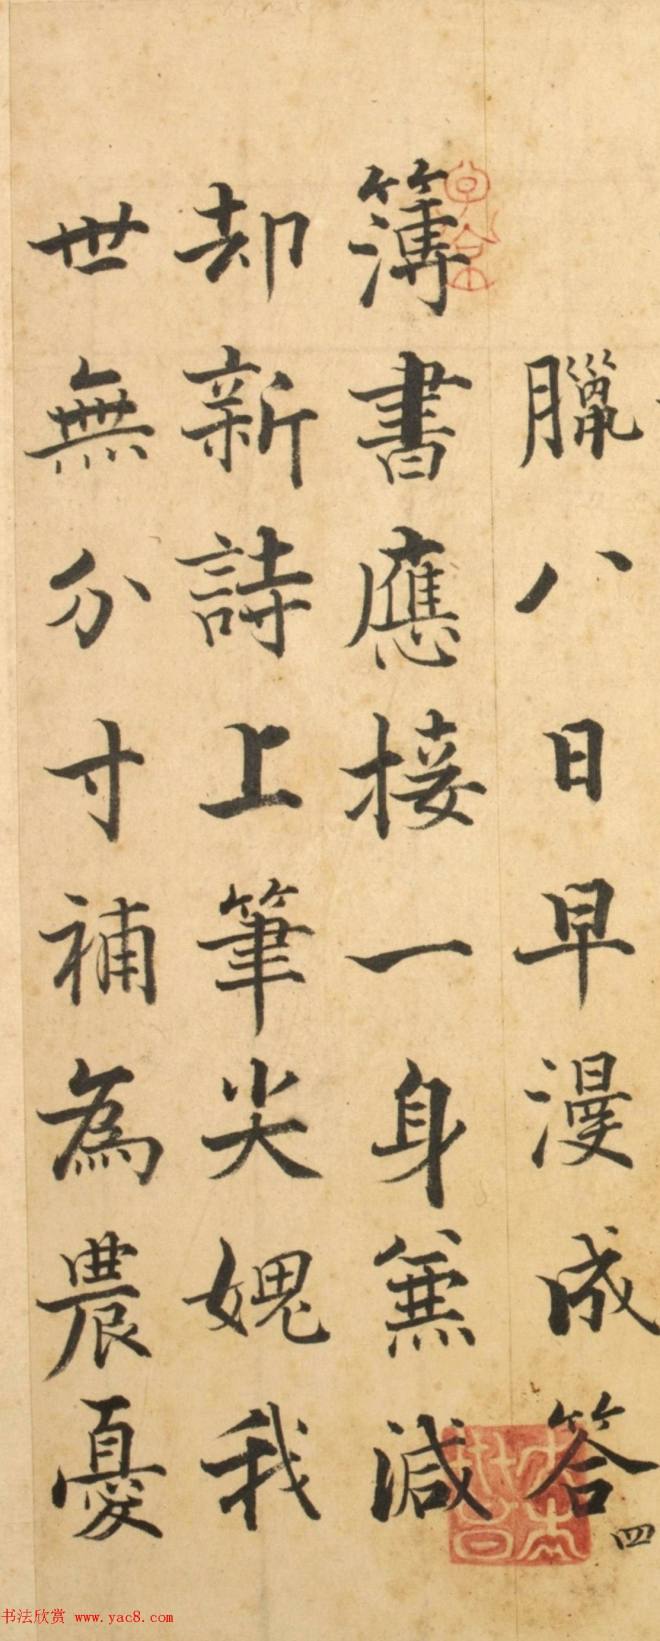 臘八日早漫成答
四
簿書應接一身兼減
却新詩上筆尖媿我
世無分寸補為農憂
书法欣赏 www.yac8.com